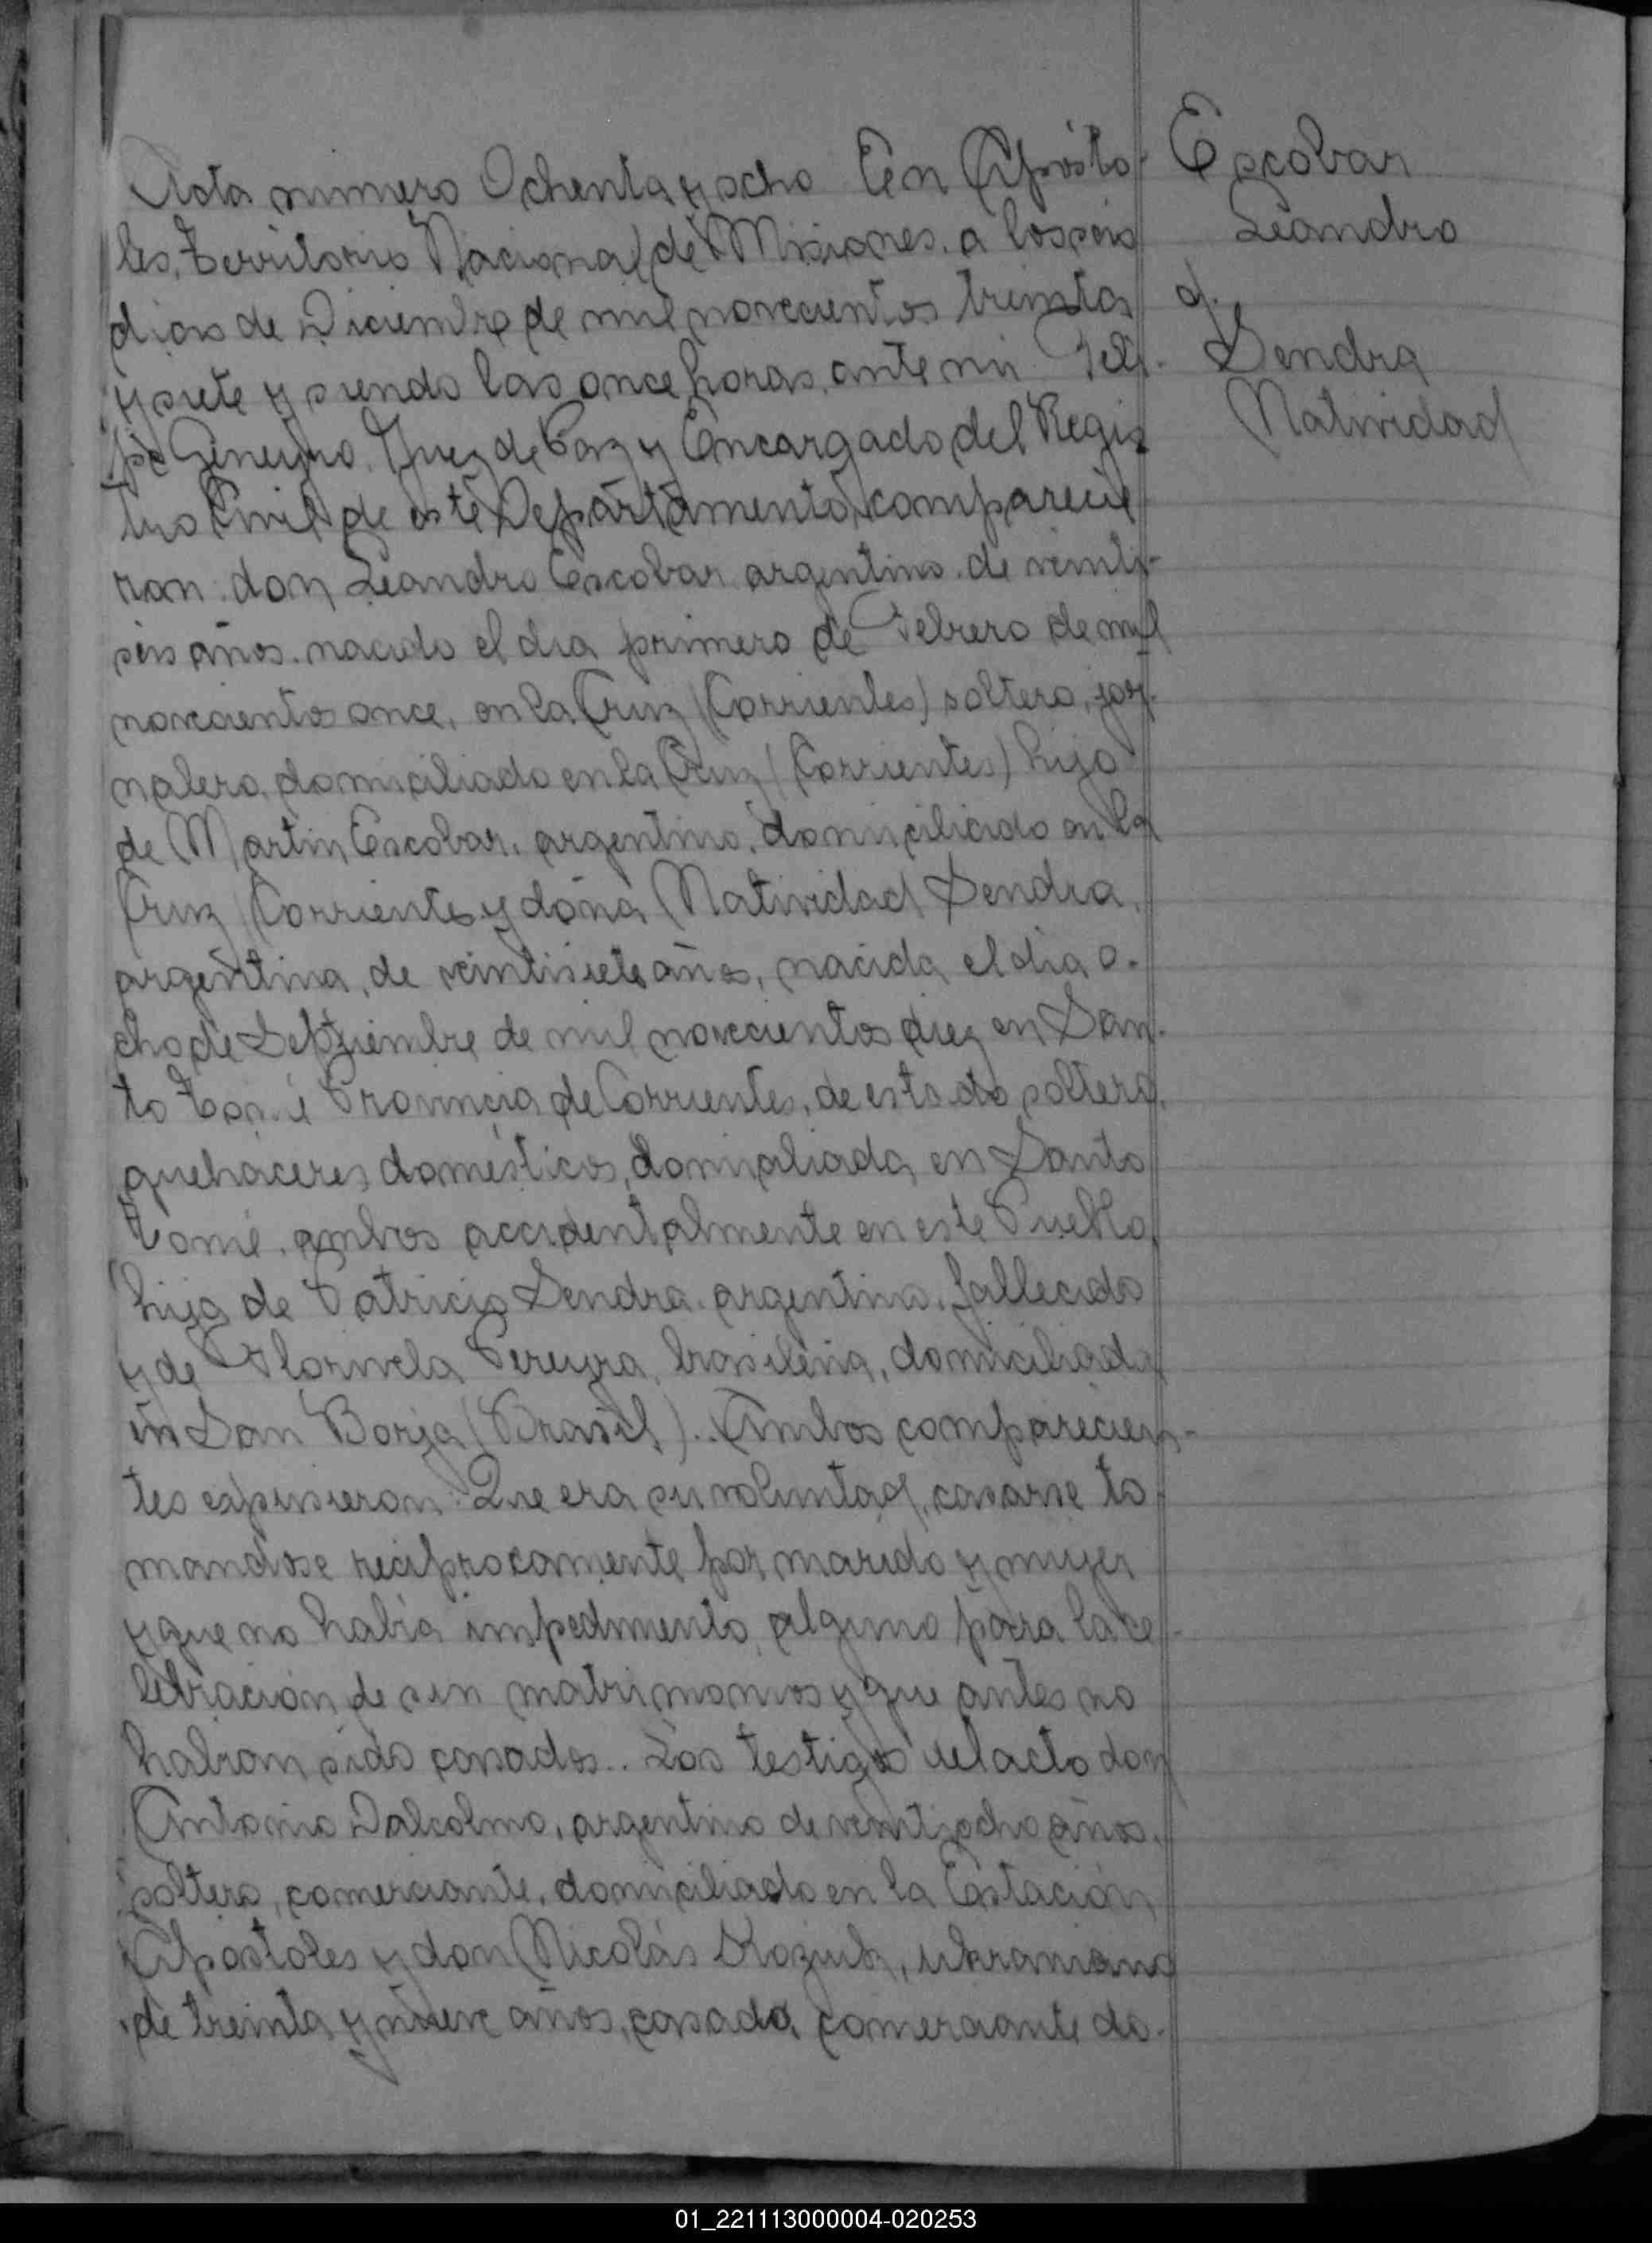 Acta numero Ochenta y ocho En Apósto-
les, Territorio Nacional de Misiones, a los seis
dias de Diciembre de mil novecientos treinta
y siete y siendo las once horas, ante mi Feli-
pe Juez de Paz y Encargado del Regis
tro Civil de este Departamento, comparecie
ron: don Leandro Escobar argentino, de veinti-
seis años, nacido el dia primero de Febrero de mil
novecientos once, en la Cruz (Corrientes) soltero, jor-
nalero, domiciliado en la Cruz (Corrientes) hijo
de Martin Escobar, argentino, domiciliado en la
Cruz (Corrientes y doña Natividad Sendra,
argentina, de veintisiete años, nacida el dia o-
cho de Septiembre de mil novecientos diez en San-
to Tomé Provincia de Corrientes, de estado soltera,
quehaceres domésticos, domiciliada en Santo
Tomé, ambos accidentalmente en este Pueblo,
hija de Patricio Sendra, argentino, fallecido
y de Pereyra, brasileña, domiciliada
en San Borja (Brasil). Ambos comparecien-
tes expusieron: Que era su voluntad, casarse to-
mandose reciprocamente por marido y mujer
y que no habia impedimento alguno para la ce-
lebración de sin matrimonios y que antes no
habian sido casados.. Los testigos del acto don
Antonio Dalcolmo, argentino de veintiocho años,
soltero, comerciante, domiciliado en la Estación
Apostoles y don Nicolás ukraniano
de treinta y nueve años, casado, comerciante do-
Escobar
Leandro
c/.
Sendra
Natividad
01_221113000004-020253